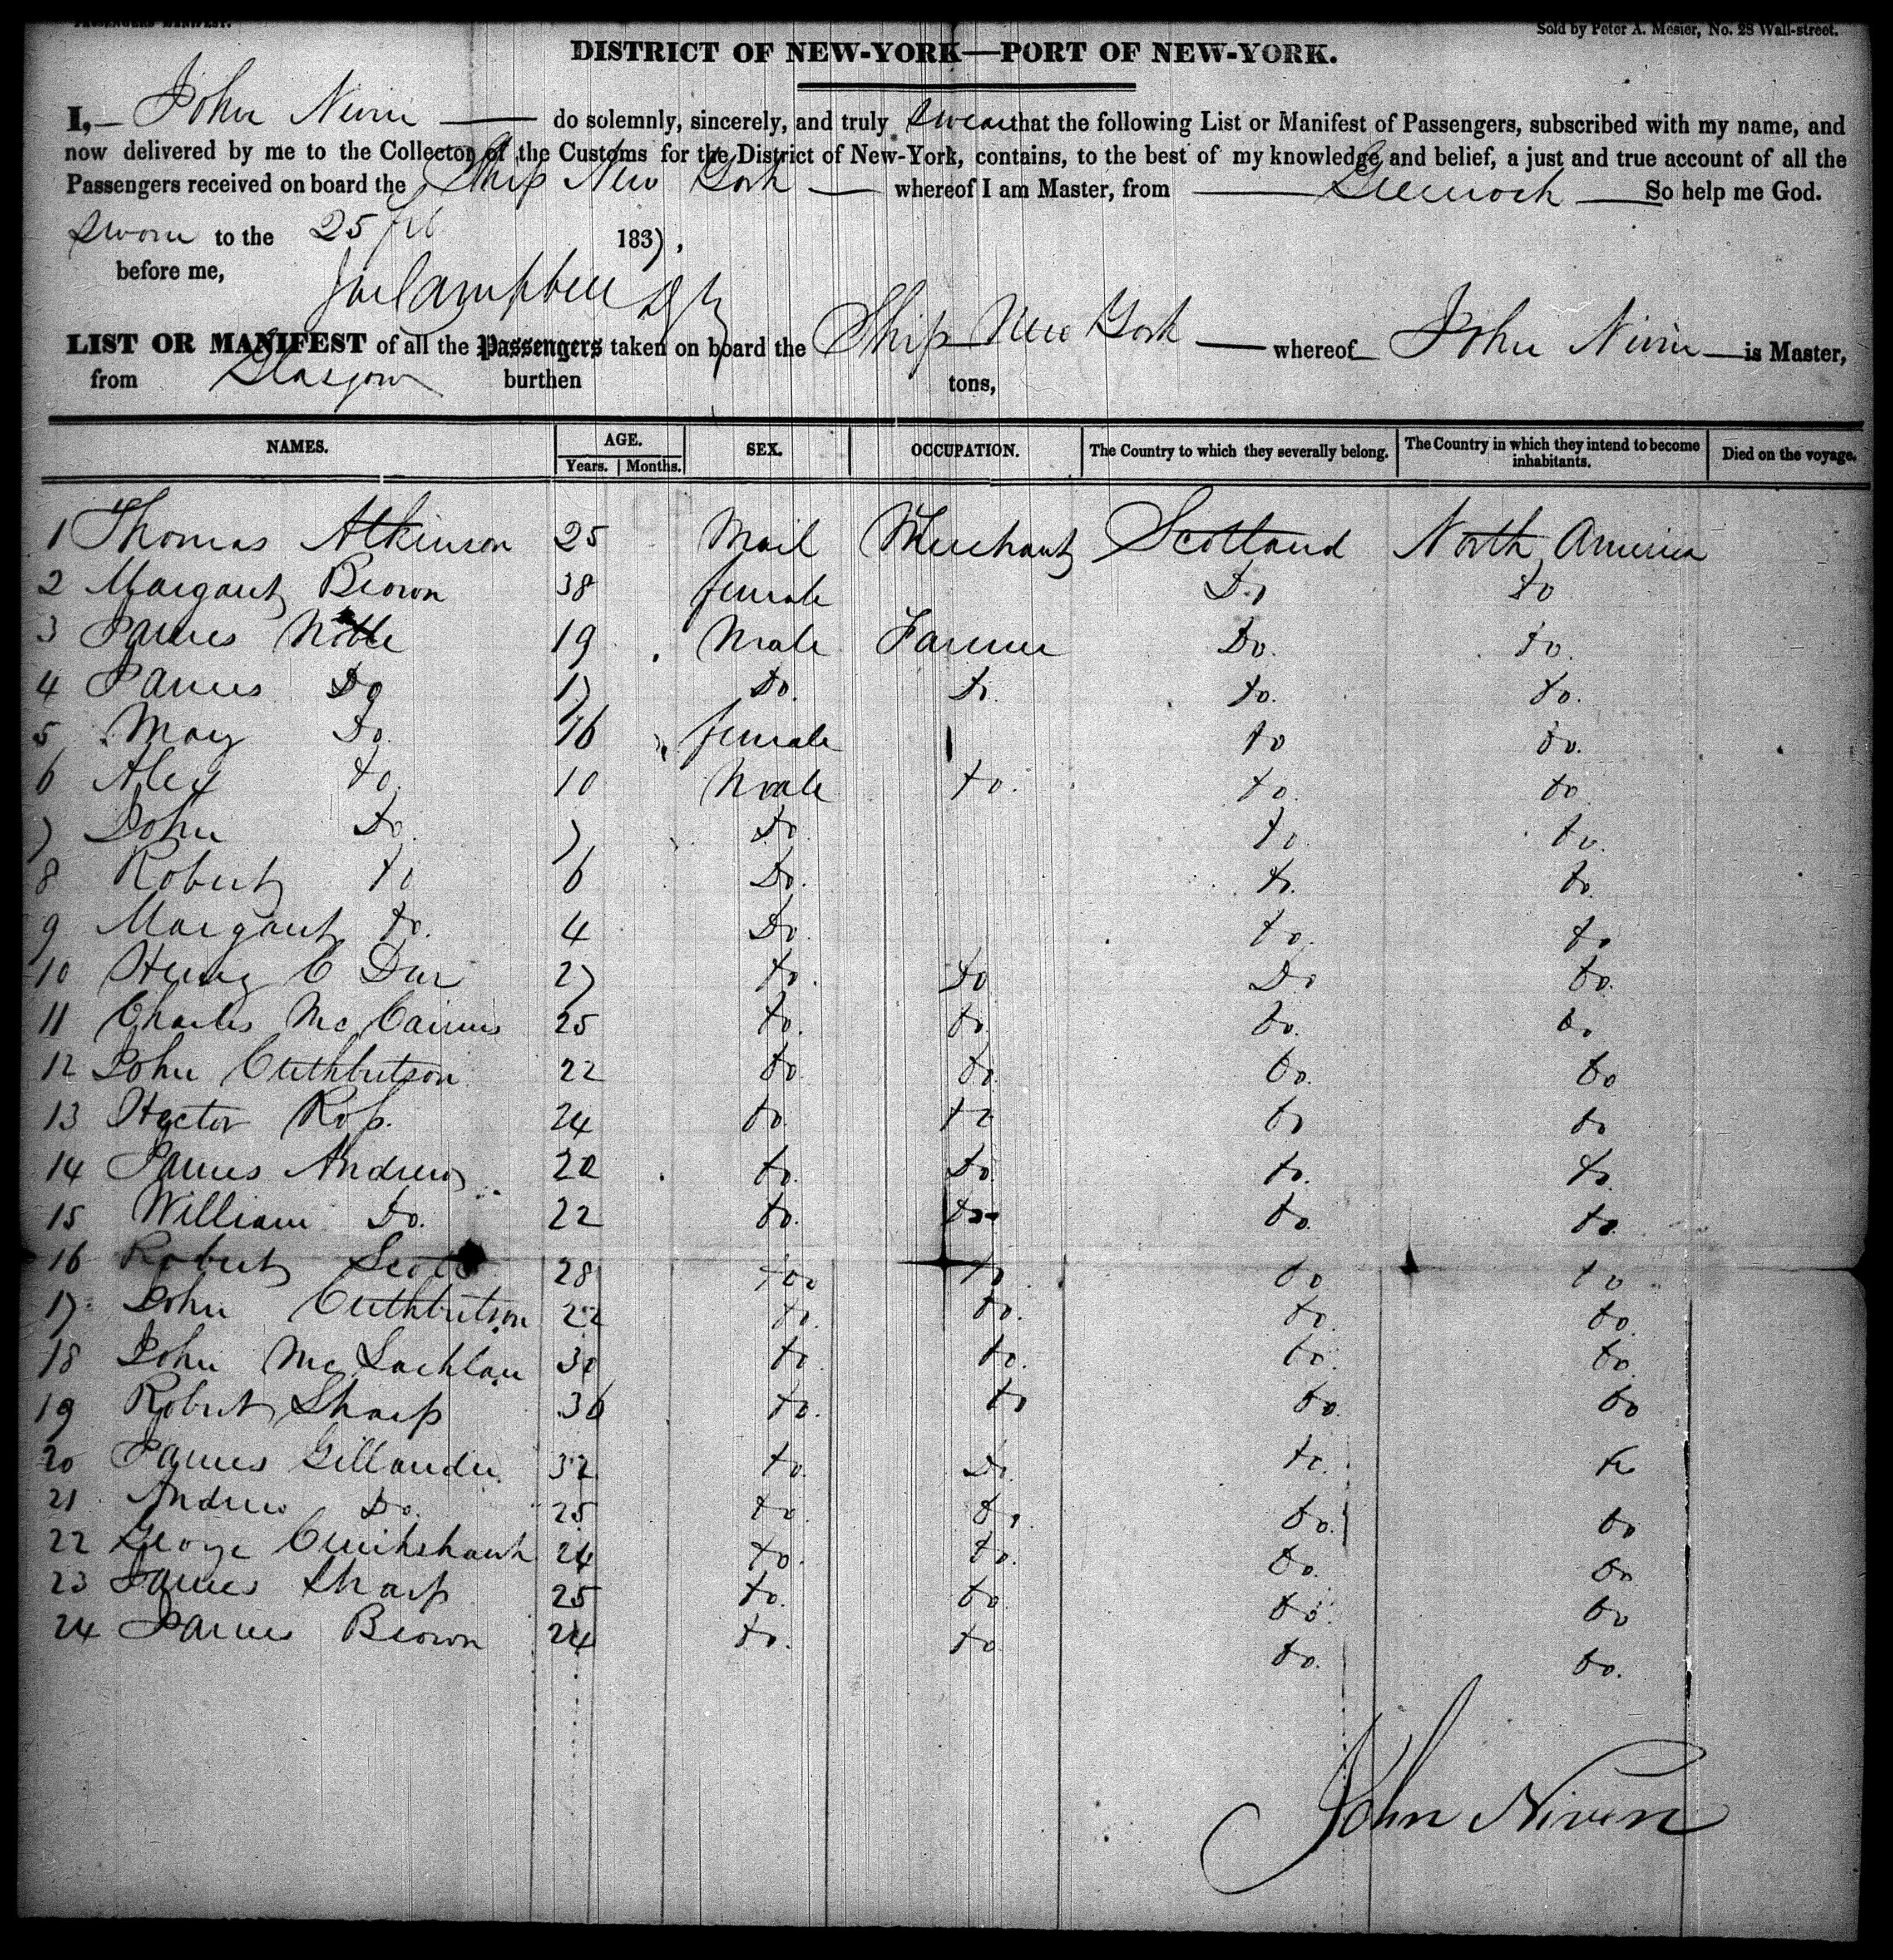 PASSENGERS MANIFEST.
Sold by Peter A. Mesier, No. 28 Wall-street.
DISTRICT OF NEW-YORK—PORT OF NEW-YORK.
I, John Niven do solemnly, sincerely, and truly swear that the following List or Manifest of Passengers, subscribed with my name, and
now delivered by me to the Collector of the Customs for the District of New-York, contains, to the best of my knowledge and belief, a just and true account of all the
Passengers received on board the Ship New York whereof I am Master, from Greenock So help me God.
Sworn to the 25 feb 1837,
before me,
Campbell
LIST OR MANIFEST of all the Passengers taken on board the Ship New York whereof John Niven is Master,
from Glasgow burthen tons,
NAMES. AGE. SEX. OCCUPATION. The Country to which they severally belong. The Country in which they intend to become inhabitants. Died on the voyage.
Years. Months.
1 Thomas Atkinson 25 Mail Merchant Scotland North America
2 Margaret Brown 38 female Do do
3 James Noble 19 Male Farmer Do. do.
4 James Do 17 Do. do. do. do.
5 Mary Do. 16 female do do.
6 Alex do. 10 Male do. do. do
7 John Do. 7 Do. do. do.
8 Robert do 6 Do. do. do.
9 Margaret do. 4 Do. do. do
10 Henry C 27 do. Do Do do.
11 Charles Mc Cairns 25 do. do. do. do
12 John Cuthbertson 22 do. do. do. do
13 Hector Ross. 24 do. do do do
14 James Andrew 22 do. Do. do. do.
15 William Do. 22 do. do do. do.
16 Robert Scott 28 do do do do
17 John Cuthbertson 22 do. do. do. do.
18 John Mc Lachlan 30 do. do. do. do.
19 Robert Sharp 36 do. do do. do
20 James Gillander 32 do. Do. do. do
21 Andrew Do. 25 do. do. do. do
22 George Cruikshank 24 do. do. do. do
23 James Sharp 25 do. do do. do
24 James Brown 24 do. do. do. do.
John Niven